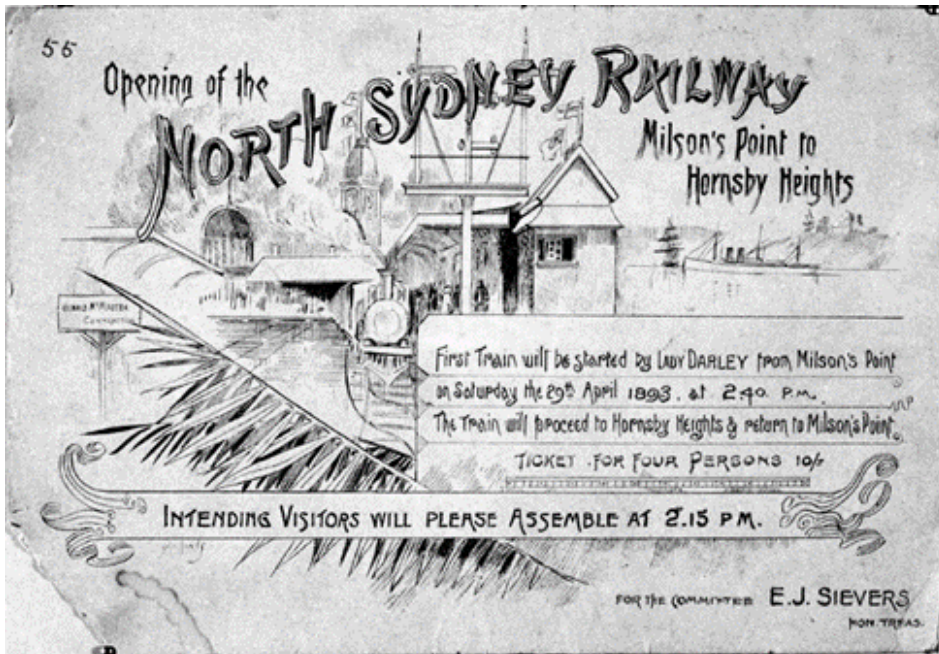 56
Opening of the
NORTH SYDNEY RAILWAY
Milson's Point to
Hornsby Heights
First Train will be started by LADY DARLEY from Milson's Point
on Saturday the 29th April 1893. at 2.40. P.M.
The Train will proceed to Hornsby Heights & return to Milson's Point.
TICKET FOR FOUR PERSONS 10/-
INTENDING VISITORS WILL PLEASE ASSEMBLE AT 2.15 PM.
FOR THE COMMITTEE E.J. SIEVERS
HON. TREAS.